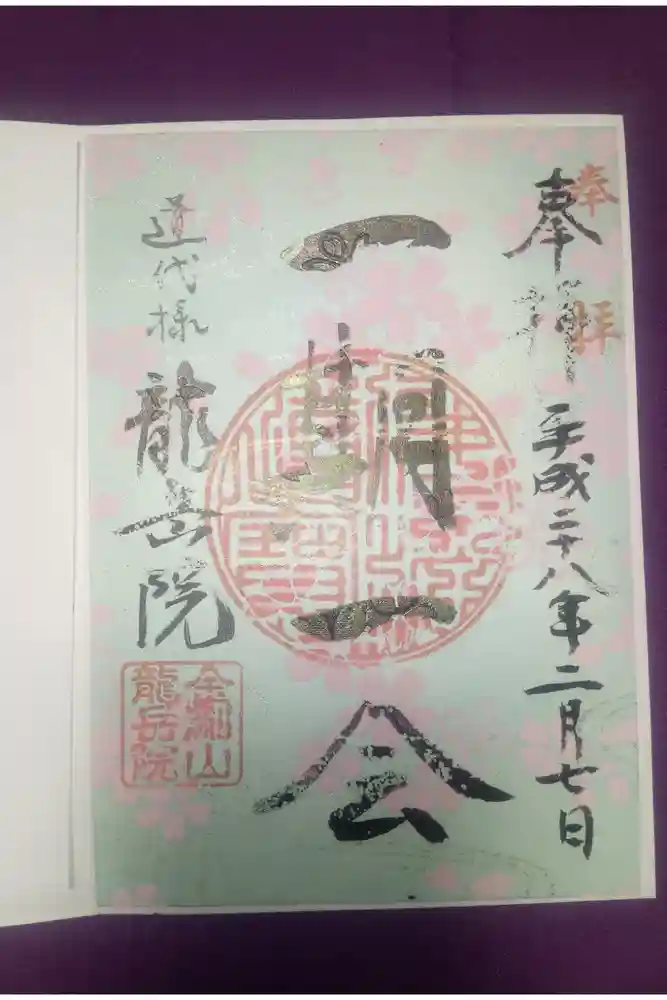 奉拝
奉拝 平成二十八年二月七日
一期一会
道代様 龍岳院
金剛山
龍岳院